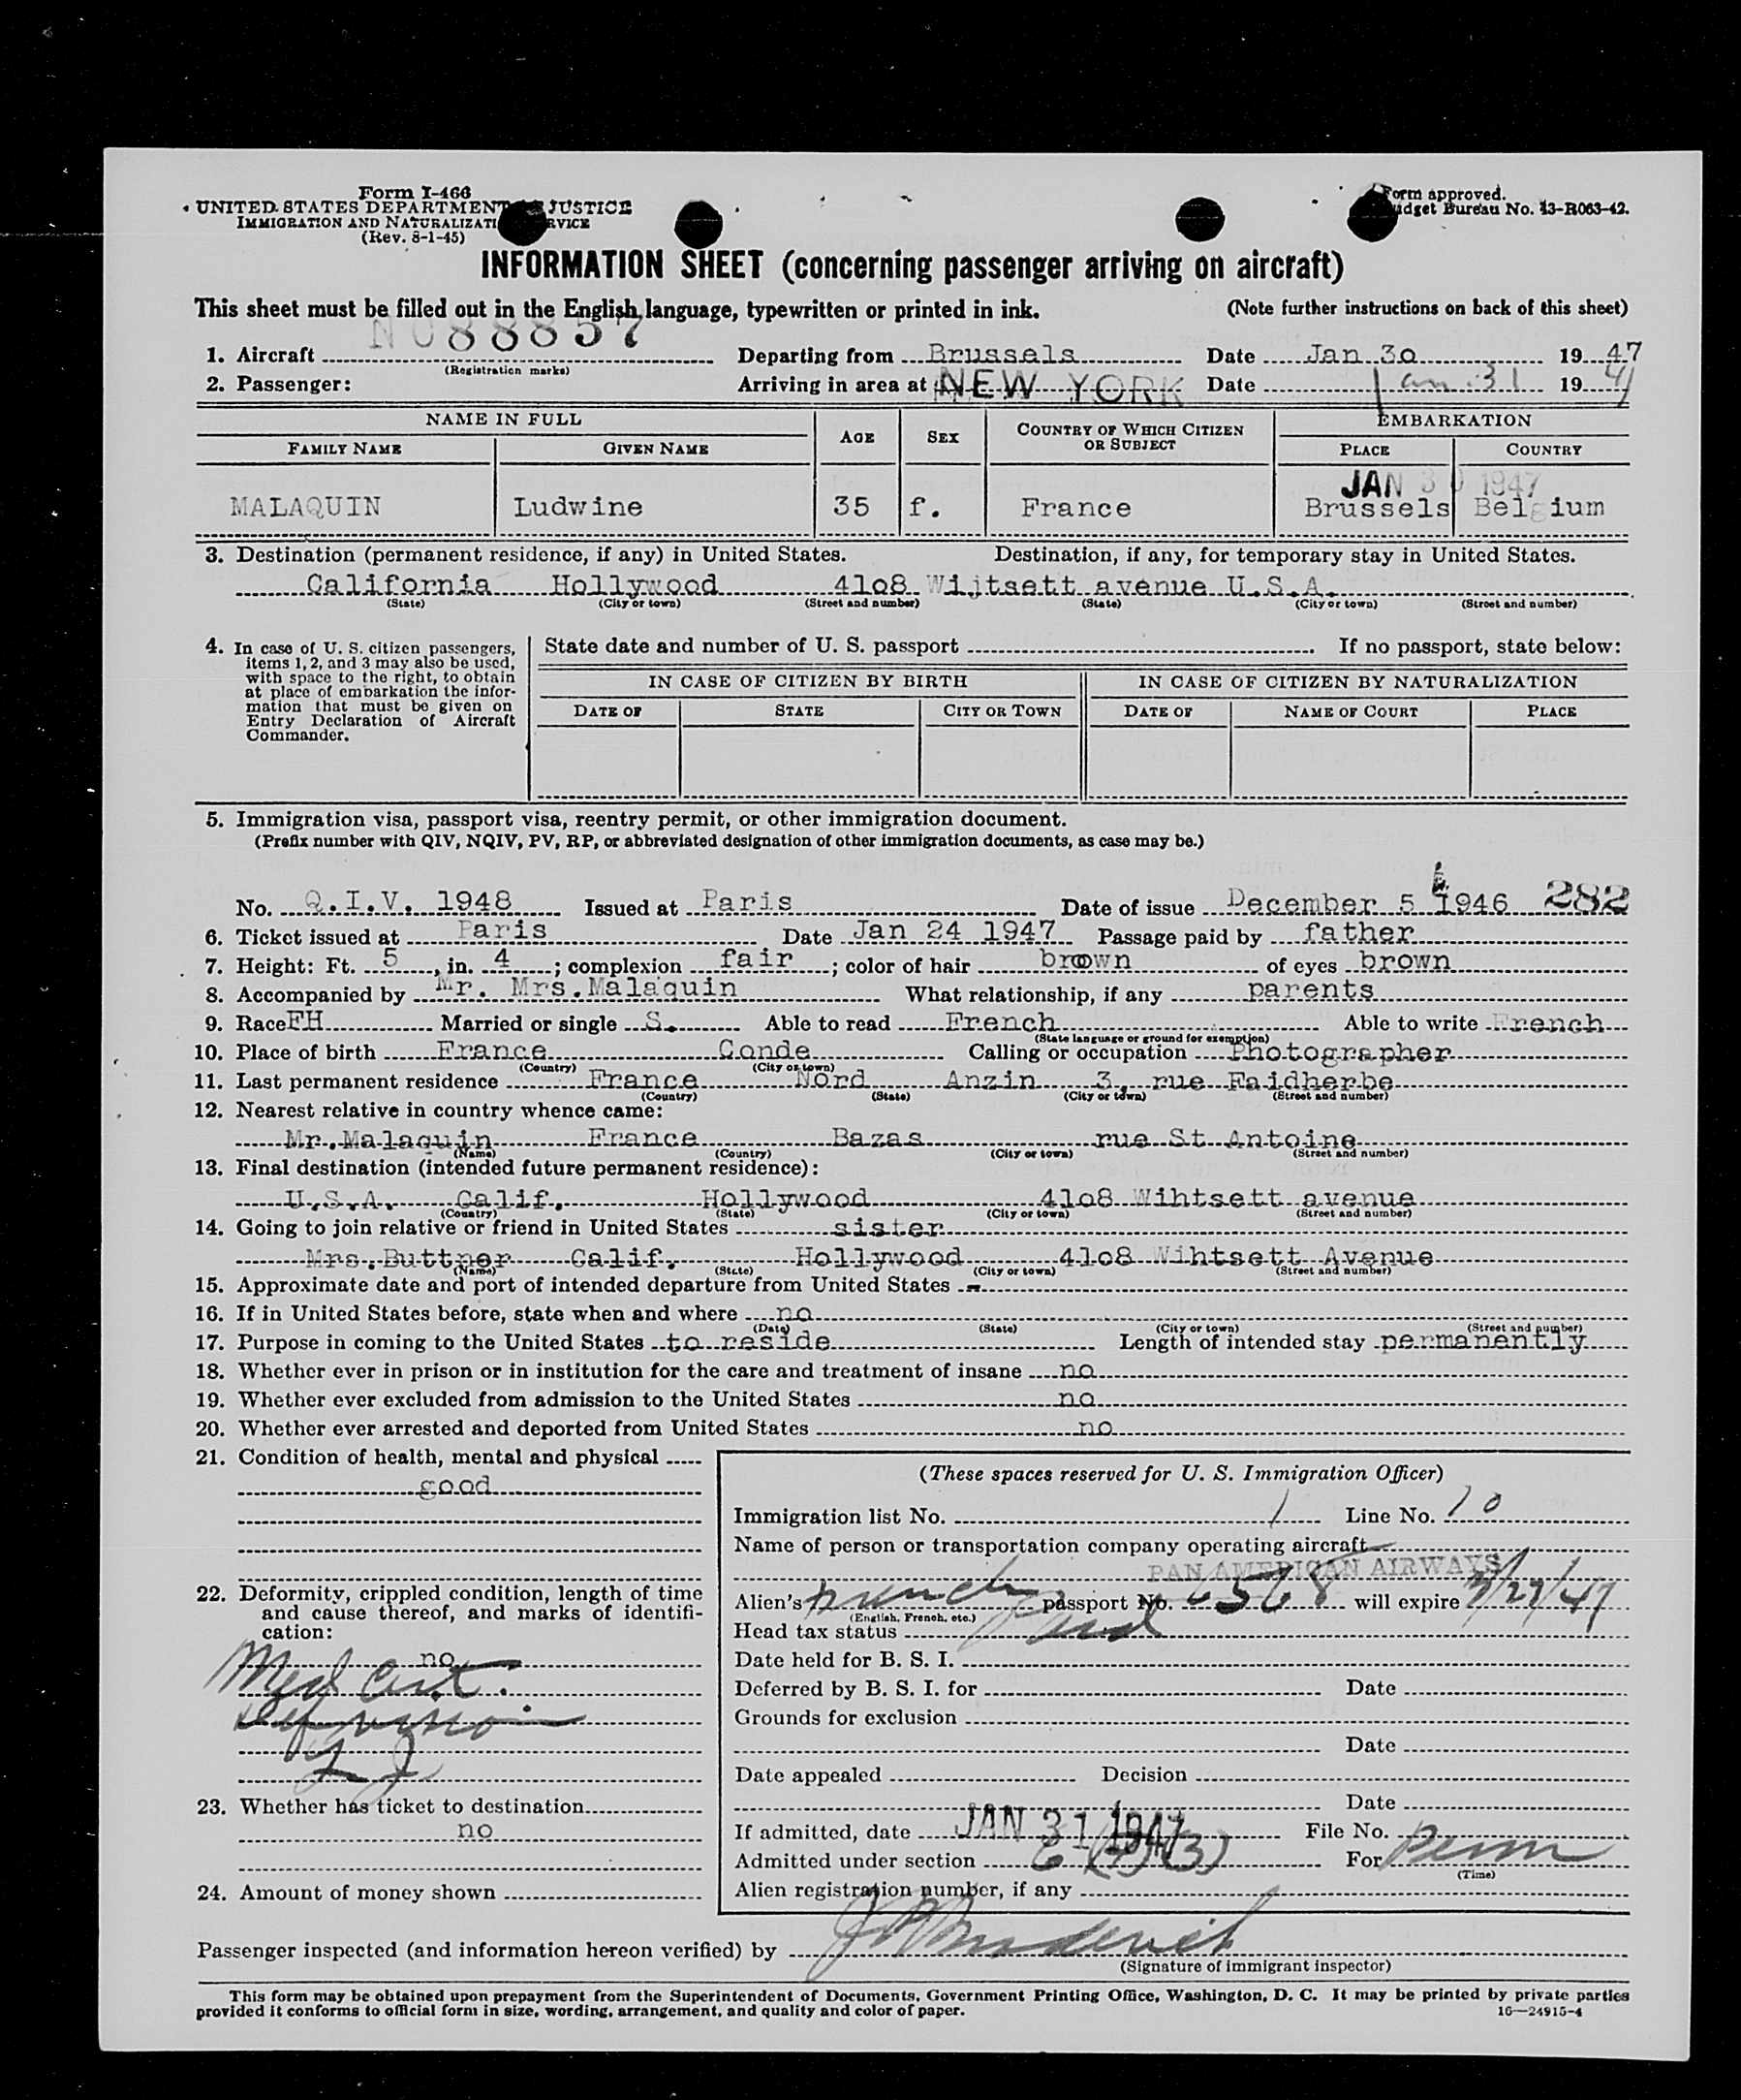 Form I-466
UNITED STATES DEPARTMENT JUSTICE
IMMIGRATION AND NATURALIZATI RVICE
(Rev. 8-1-45)
Form approved.
udget Bureau No. 43-R063-42.
INFORMATION SHEET (concerning passenger arriving on aircraft)
This sheet must be filled out in the English language, typewritten or printed in ink. (Note further instructions on back of this sheet)
1. Aircraft NC88857 Departing from Brussels Date Jan 30 1947
(Registration marks)
2. Passenger: Arriving in area at NEW YORK Date Jan. 31 1947
NAME IN FULL AGE SEX COUNTRY OF WHICH CITIZEN OR SUBJECT EMBARKATION
FAMILY NAME GIVEN NAME PLACE COUNTRY
JAN 30 1947
MALAQUIN Ludwine 35 f. France Brussels Belgium
3. Destination (permanent residence, if any) in United States. Destination, if any, for temporary stay in United States.
California Hollywood 41o8 Wijtsett avenue U.S.A.
(State) (City or town) (Street and number) (State) (City or town) (Street and number)
4. In case of U. S. citizen passengers, items 1, 2, and 3 may also be used, with space to the right, to obtain at place of embarkation the information that must be given on Entry Declaration of Aircraft Commander.
State date and number of U. S. passport . If no passport, state below:
IN CASE OF CITIZEN BY BIRTH IN CASE OF CITIZEN BY NATURALIZATION
DATE OF STATE CITY OR TOWN DATE OF NAME OF COURT PLACE
5. Immigration visa, passport visa, reentry permit, or other immigration document.
(Prefix number with QIV, NQIV, PV, RP, or abbreviated designation of other immigration documents, as case may be.)
No. Q.I.V. 1948 Issued at Paris Date of issue December 5 1946 282
6. Ticket issued at Paris Date Jan 24 1947 Passage paid by father
7. Height: Ft. 5, in. 4; complexion fair; color of hair brown of eyes brown
8. Accompanied by Mr. Mrs.Malaquin What relationship, if any parents
9. Race FH Married or single S. Able to read French Able to write French
(State language or ground for exemption)
10. Place of birth France Conde Calling or occupation Photographer
(Country) (City or town)
11. Last permanent residence France Nord Anzin 3, rue Faidherbe
(Country) (State) (City or town) (Street and number)
12. Nearest relative in country whence came:
Mr.Malaquin France Bazas rue St Antoine
(Name) (Country) (City or town) (Street and number)
13. Final destination (intended future permanent residence):
U.S.A. Calif. Hollywood 41o8 Wihtsett avenue
(Country) (State) (City or town) (Street and number)
14. Going to join relative or friend in United States sister
Mrs.Buttner Calif. Hollywood 41o8 Wihtsett Avenue
(Name) (State) (City or town) (Street and number)
15. Approximate date and port of intended departure from United States -
16. If in United States before, state when and where no
(Date) (State) (City or town) (Street and number)
17. Purpose in coming to the United States to reside Length of intended stay permanently
18. Whether ever in prison or in institution for the care and treatment of insane no
19. Whether ever excluded from admission to the United States no
20. Whether ever arrested and deported from United States no
21. Condition of health, mental and physical
good
22. Deformity, crippled condition, length of time and cause thereof, and marks of identification:
no
Med Cert.
23. Whether has ticket to destination
no
24. Amount of money shown
(These spaces reserved for U. S. Immigration Officer)
Immigration list No. 1 Line No. 10
Name of person or transportation company operating aircraft
PAN AMERICAN AIRWAYS
Alien's French passport No. 6568 will expire
(English, French, etc.)
Head tax status
Date held for B. S. I.
Deferred by B. S. I. for Date
Grounds for exclusion
Date
Date appealed Decision
Date
If admitted, date JAN 31 1947 File No.
Admitted under section For Perm
(Time)
Alien registration number, if any
Passenger inspected (and information hereon verified) by
(Signature of immigrant inspector)
This form may be obtained upon prepayment from the Superintendent of Documents, Government Printing Office, Washington, D. C. It may be printed by private parties
provided it conforms to official form in size, wording, arrangement, and quality and color of paper. 16—24915-4